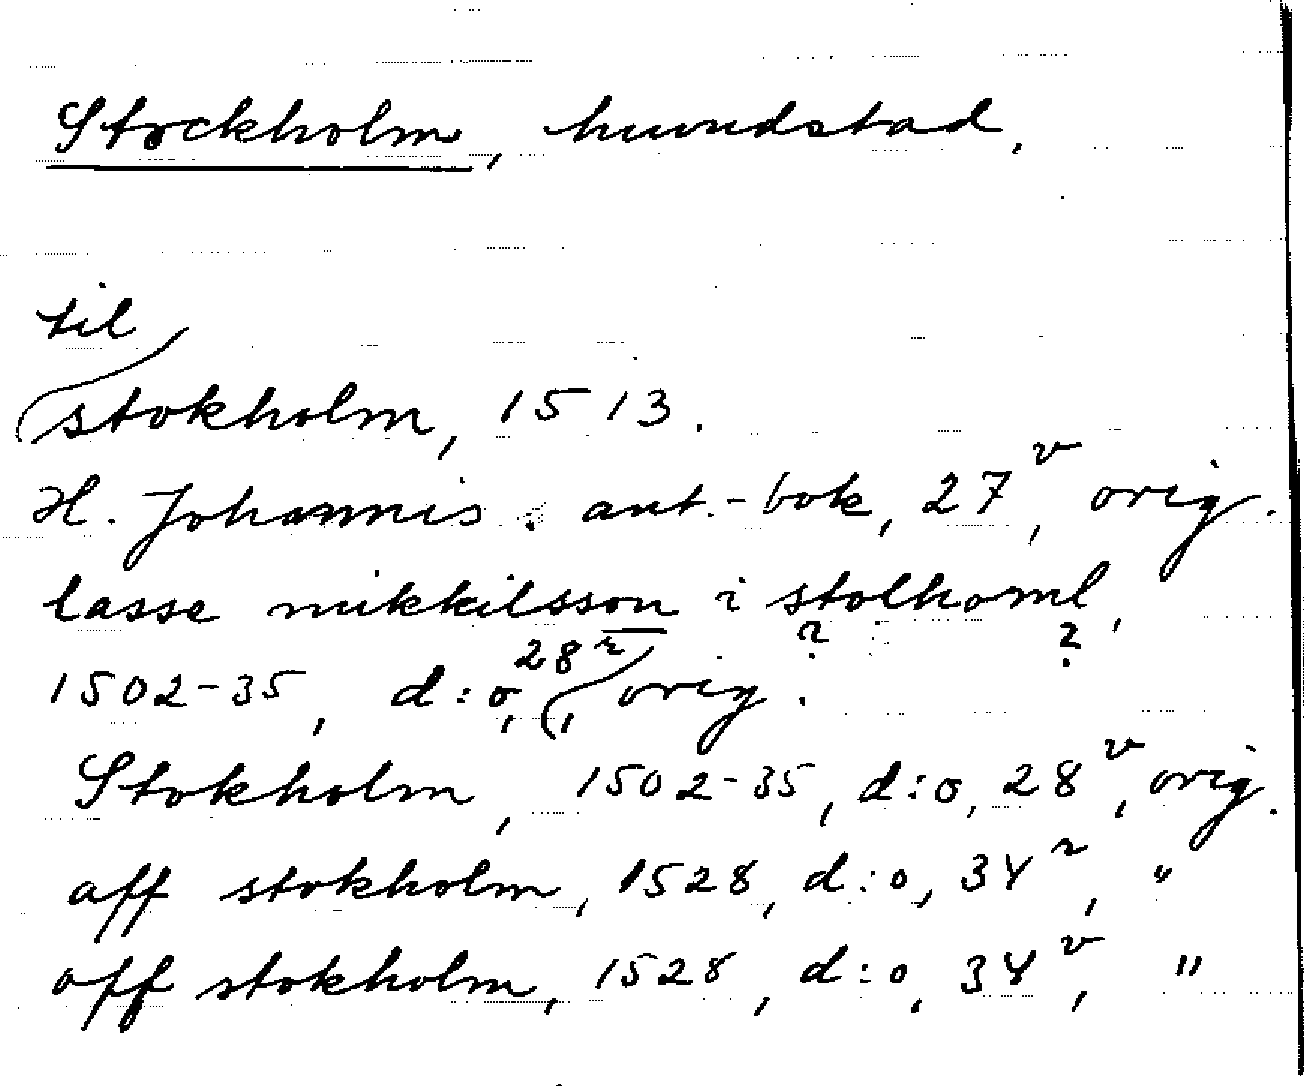 Stockholm, huvudstad.
til
stokholm, 1513.
H. Johannis. ant.-bok, 27v, orig.
lasse mikkilsson i stolhoml,
? ?
1502-35, d:o, 28r, orig.
Stokholm, 1502-35, d:o, 28v, orig.
aff stokholm, 1528, d:o, 34r, "
off stokholm, 1528, d:o, 34v, "